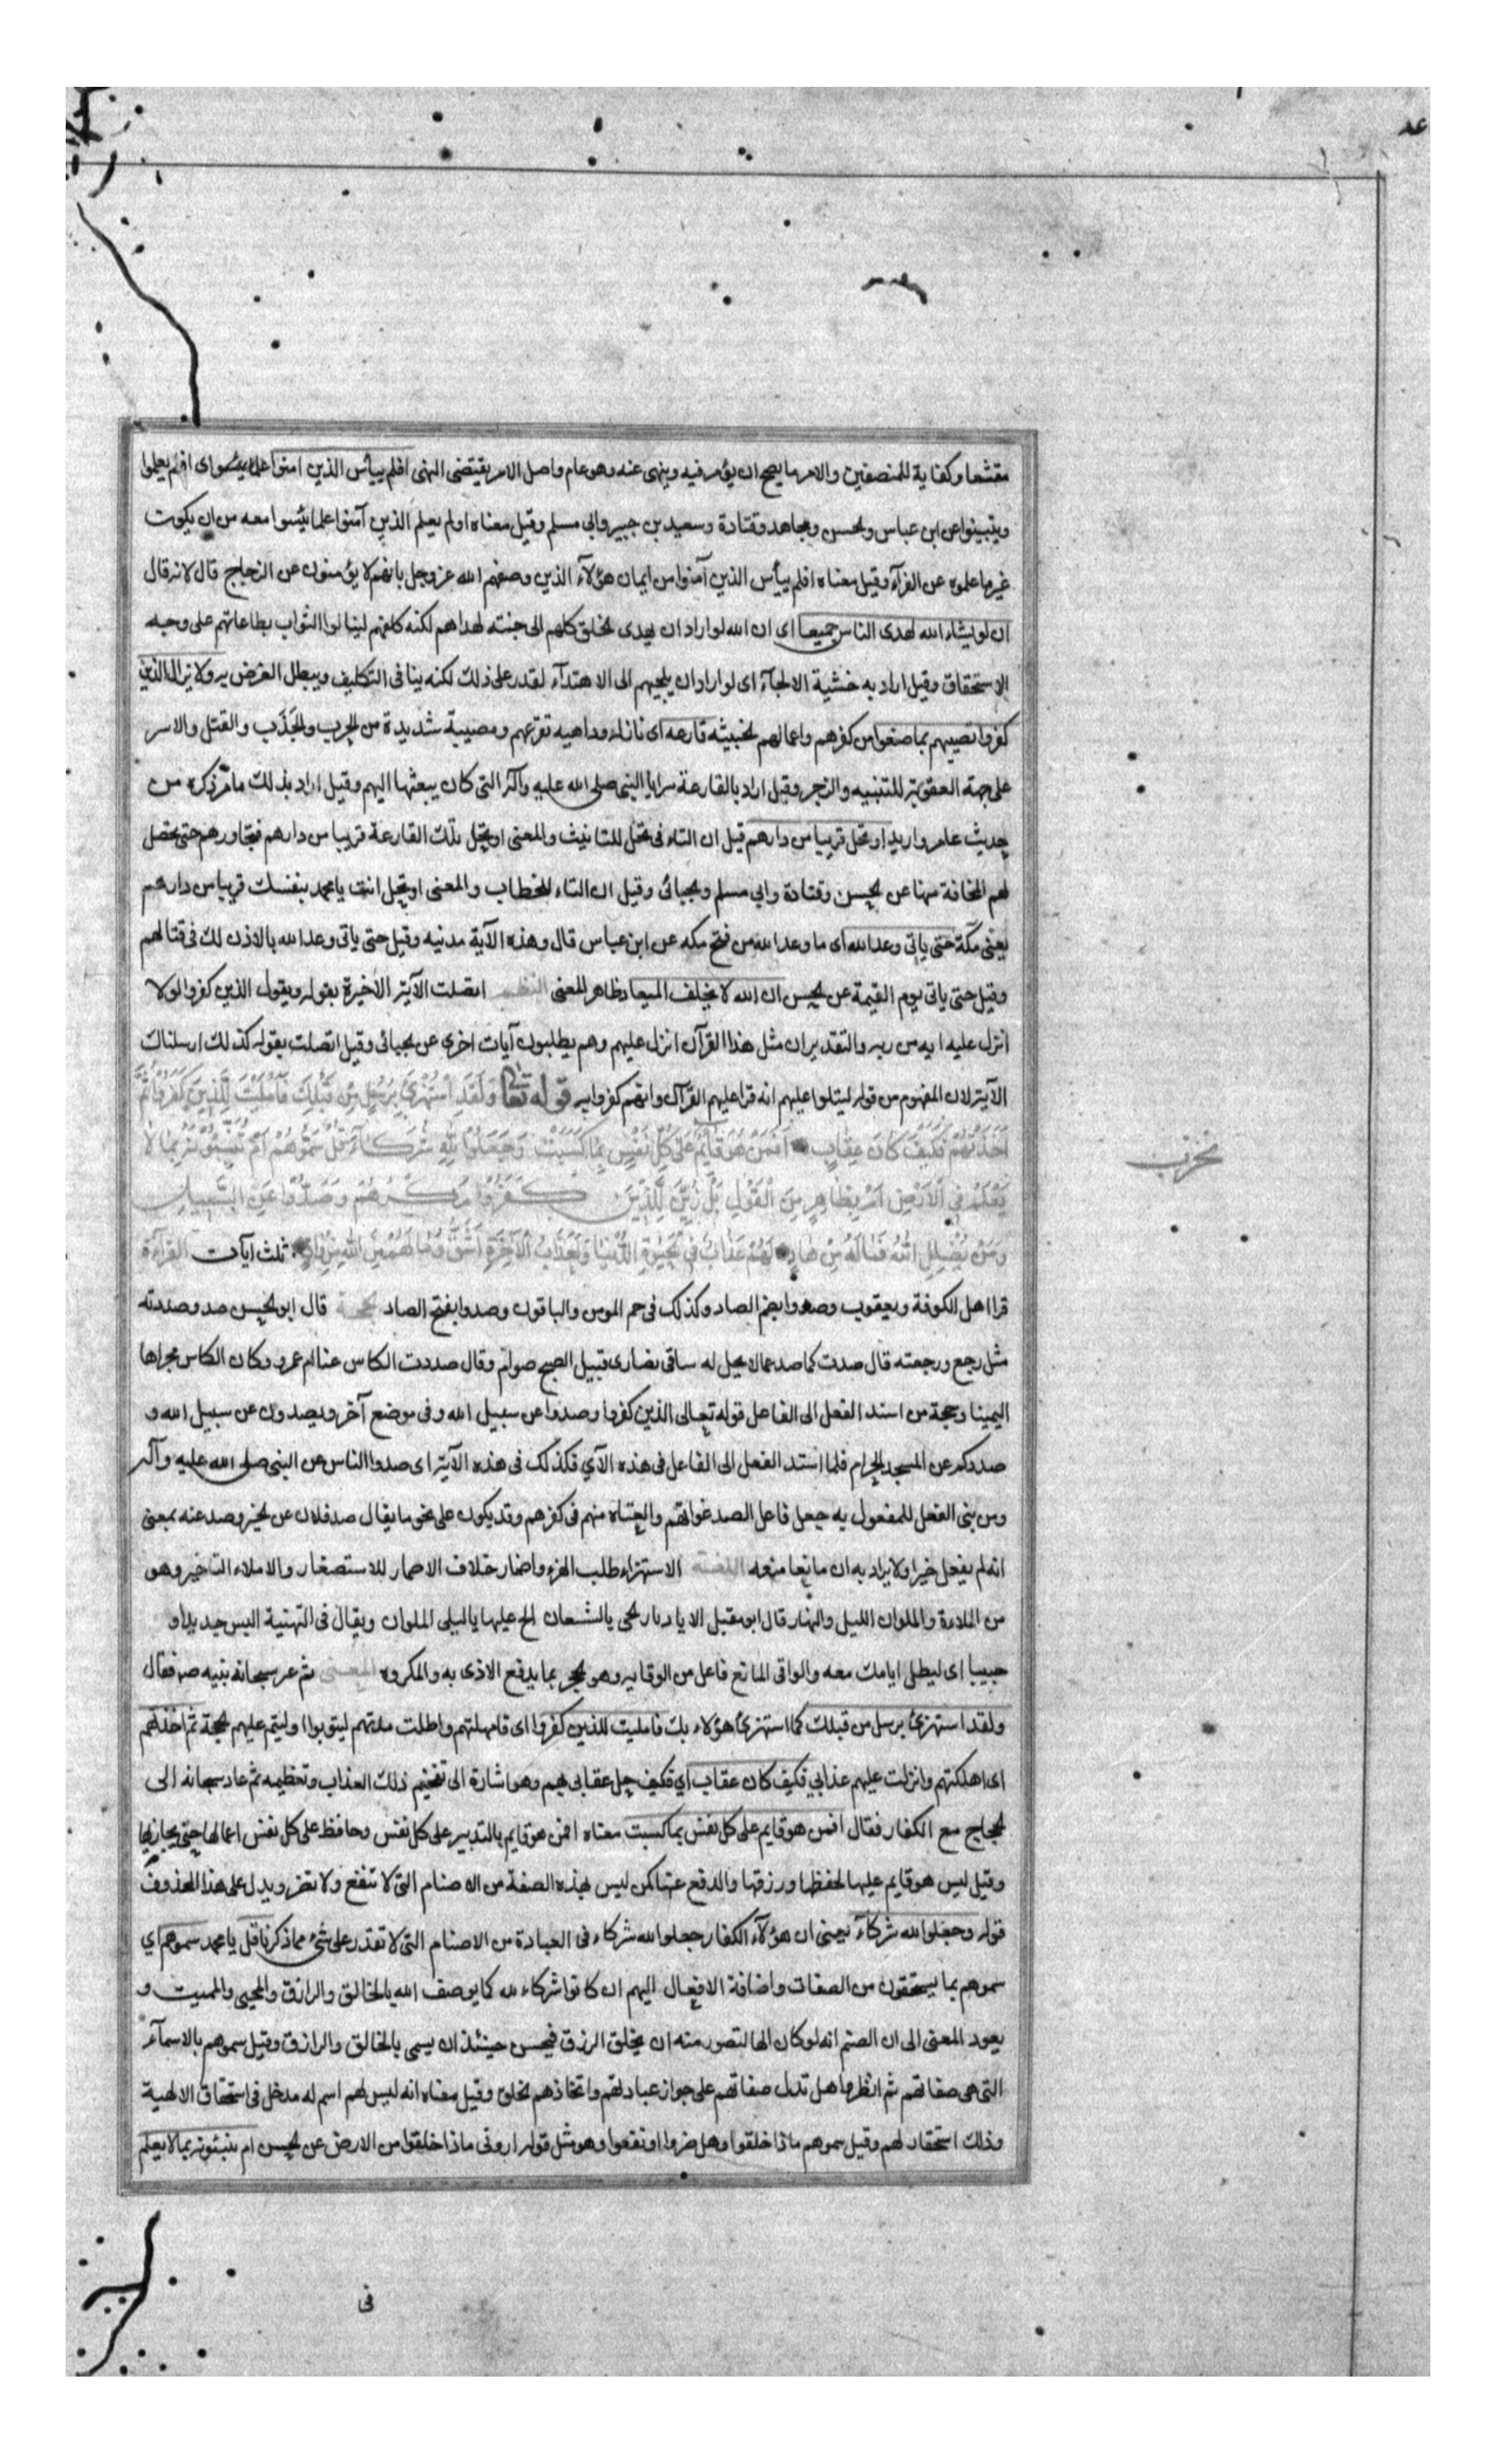 مقنعا وكفاية للمنصفين والامر ما يصح ان يؤمر فيه وينهى عنه وهو عام واصل الامر يقيتضى النهى افلم ييأس الذين امنوا اى افلم يعلموا
ويتبينوا عن ابن عباس ولحسن ومجاهد وقتادة وسعيد بن جبير وابي مسلم وقيل معناه اولم يعلم الذين آمنوا علما يئسوا معه من ان يكون
غير ما علموه عن الفرآء وقيل معناه افلم ييأس الذين آمنوا من ايمان هؤلآء الذين وصفهم الله عز وجل بانهم لا يؤمنون عن الزجاج قال لانه قال
ان لو يشاء الله لهدى الناس جميعا اى ان الله لو اراد ان يهدى لخلق كلهم الى جنته لهداهم لكنه كلفهم لينالوا الثواب بطاعاتهم على وجه
الاستحقاق وقيل اراد به خشية الالجآء اى لو اراد ان يلجيهم الى الاهتدآء لقدر على ذلك لكنه ينافى التكليف ويبطل الغرض به ولا يزال الذين
كفروا تصيبهم بما صنعوا من كفرهم واعمالهم لخبيثه قارعه اى نازله وداهيه تقرعهم ومصيبة شديدة من الحرب والجَدَب والقتل والاسر
على جهة العقوبة للتنبيه والزجر وقيل اراد بالقارعة سرايا النبى صلى الله عليه وآله التى كان يبعثها اليهم وقيل اراد بذلك ما مر ذكره من
حديث عامر واربد او تحل قريبا من دارهم قيل ان التاء فى تحل للتانيث والمعنى او تحل تلك القارعة قريبا من دارهم فتجاورهم حتى تحصل
لهم المخافة منها عن لحسن وقتادة وابي مسلم ولجبائى وقيل ان التاء للخطاب والمعنى او تحل انت يا محمد بنفسك قريبا من دارهم
يعنى مكة حتى ياتى وعد الله اى ما وعد الله من فتح مكه عن ابن عباس قال وهذه الآية مدنيه وقيل حتى ياتى وعد الله بالاذن لك فى قتالهم
وقيل حتى ياتى يوم القيمة عن لحسن ان الله لا يخلف الميعاد ظاهر المعنى النظم اتصلت الآية الاخيرة بقوله ويقول الذين كفروا لولا
انزل عليه ايه من ربه والتقدير ان مثل هذا القرآن انزل عليهم وهم يطلبون آيات اخرى عن لجبائى وقيل اتصلت بقوله كذلك ارسلناك
الآية لان المفهوم من قوله ليتلوا عليهم انه قرا عليهم القرآن وانهم كفروا به قوله تعالى وَلَقَدِ اسْتُهْزِئَ بِرُسُلٍ مِن قَبْلِكَ فَأَمْلَيْتُ لِلَّذِينَ كَفَرُوا ثُمَّ
أَخَذْتُهُمْ فَكَيْفَ كَانَ عِقَابِ أَفَمَنْ هُوَ قَايِمٌ عَلَى كُلِّ نَفْسٍ بِمَا كَسَبَتْ وَجَعَلُوا لِلّهِ شُرَكَآءَ قُلْ سَمُّوهُمْ أَمْ تُنَبِّئُونَهُ بِمَا لَا
يَعْلَمُ فِي الْأَرْضِ أَمْ بِظَاهِرٍ مِنَ الْقَوْلِ بَلْ زُيِّنَ لِلَّذِينَ كَفَرُوا مَكْرُهُمْ وَصُدُّوا عَنِ السَّبِيلِ
وَمَنْ يُضْلِلِ اللهُ فَمَا لَهُ مِنْ هَادٍ لَهُمْ عَذَابٌ فِي الْحَيوةِ الدُّنْيَا وَلَعَذَابُ الْآخِرَةِ أَشَقُّ وَمَا لَهُمْ مِنَ اللهِ مِنْ وَاقٍ ثلث آيات القراءة
قرا اهل الكوفة ويعقوب وصدوا بضم الصاد وكذلك فى حم المومن والباقون وصدوا بفتح الصاد لحجة قال ابو لحسن صد وصددته
مثل رجع ورجعته قال صدت كما صد عما لا يحل له ساقى نصارى قبيل الصبح صوام وقال صددت الكاس عنا ام عمرو وكان الكاس مجراها
اليمينا وحجة من اسند الفعل الى الفاعل قوله تعالى الذين كفروا وصدوا عن سبيل الله وفى موضع آخر ويصدون عن سبيل الله و
صدوكم عن المسجد الحرام فلما اسند الفعل الى الفاعل فى هذه الآي فكذلك فى هذه الآية اى صدوا الناس عن النبى صلى الله عليه وآله
ومن بنى الفعل للمفعول به جعل فاعل الصد غواتهم والعتاة منهم فى كفرهم وقد يكون على نحو ما يقال صد فلان عن لخير وصد عنه بمعنى
انه لم يفعل خيرا ولا يراد به ان مانعا منعه اللغة الاستهزاء طلب الهزء الاستصغار والاملاء التاخير وهو
من الملاءة والملوان الليل والنهار قال ابن مقبل الا يا ديار لحى بالسبعان الح عليها بالبلى الملوان ويقال فى التهنية البس جديدا و
حبيبا اى ليطل ايامك معه والواقى المانع فاعل من الوقايه وهو لحجر بما يدفع الاذى به والمكروه المعنى ثم عز سبحانه نبيه فقال
ولقد استهزئ برسل من قبلك كما استهزئ هؤلاء بك فامليت للذين كفروا اى فامهلتهم واطلت مدتهم ليتوبوا وليتم عليهم لحجة ثم اخذتهم
اى اهلكتهم وانزلت عليهم عذابي فكيف كان عقاب اي فكيف حل عقابى بهم وهو اشارة الى تفخيم ذلك العذاب وتعظيمه ثم عاد سبحانه الى
لحجاج مع الكفار فقال افمن هو قايم على كل نفس بما كسبت معناه افمن هو قايم بالتدبير على كل نفس وحافظ على كل نفس اعمالها حتى يجازيها
وقيل ليس هو قايم عليها لحفظها ورزقها والدفع عنها كمن ليس بهذه الصفة من الاصنام التى لا تنفع ولا تضر ويدل على هذا المحذوف
قوله وجعلوا لله شركآء يعنى ان هؤلآء الكفار جعلوا لله شركاء فى العبادة من الاصنام التى لا تقدر على شئ مما ذكرنا قل يا محمد سموهم اي
سموهم بما يستحقون من الصفات واضافة الافعال اليهم ان كانوا شركاء لله كما يوصف الله بالخالق والرازق والمحيى والمميت و
يعود المعنى الى ان الصنم انه لو كان الها لتصور منه ان يخلق الرزق فيحسن حينئذ ان يسمى بالخالق والرازق وقيل سموهم بالاسمآء
التى هى صفاتهم ثم انظروا هل تدل صفاتهم على جواز عبادتهم واتخاذهم لخلق وقيل معناه انه ليس لهم اسم له مدخل فى استحقاق الالهية
وذلك استحقار لهم وقيل سموهم ماذا خلقوا وهل ضروا او نفعوا وهو مثل قوله ارونى ماذا خلقوا من الارض عن لحسن ام تنبئونه بما لا يعلم
فى